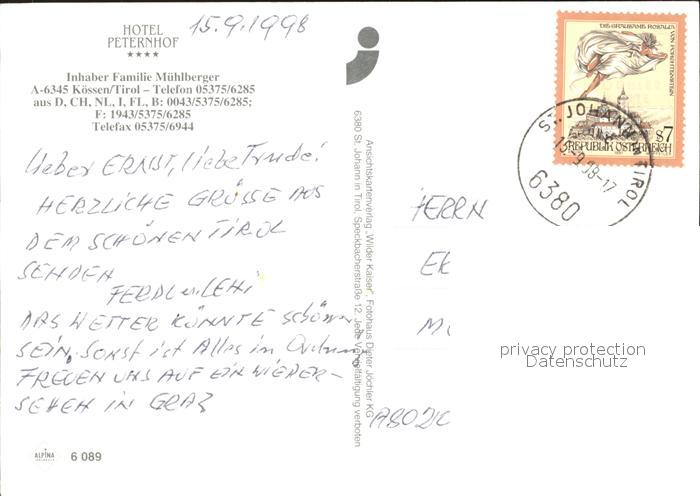 HOTEL
PETERNHOF
★★★★
15.9.1998
Inhaber Familie Mühlberger
A-6345 Kössen/Tirol – Telefon 05375/6285
aus D, CH, NL, I, FL, B: 0043/5375/6285;
F: 1943/5375/6285
Telefax 05375/6944
Lieber ERNST, liebe Trude!
HERZLICHE GRÜSSE AUS
DEM SCHÖNEN TIROL
SENDEN
FERDL u. LEHI
DAS WETTER KÖNNTE SCHÖNER
SEIN, Sonst ist Alles in Ordnung
FREUEN UNS AUF EIN WIEDER-
SEHEN IN GRAZ
ALPINA
6 089
Ansichtskartenverlag „Wilder Kaiser“, Fotohaus Dieter Jöchler KG
6380 St. Johann in Tirol, Speckbacherstraße 12, Jede Vervielfältigung verboten
DIE GRAUSAME ROSALIA
VON FORCHTENSTEIN
S7
REPUBLIK ÖSTERREICH
ST. JOHANN IN TIROL
15.-9.98-17
6380
HERRN
EK
M
A8020
privacy protection
Datenschutz